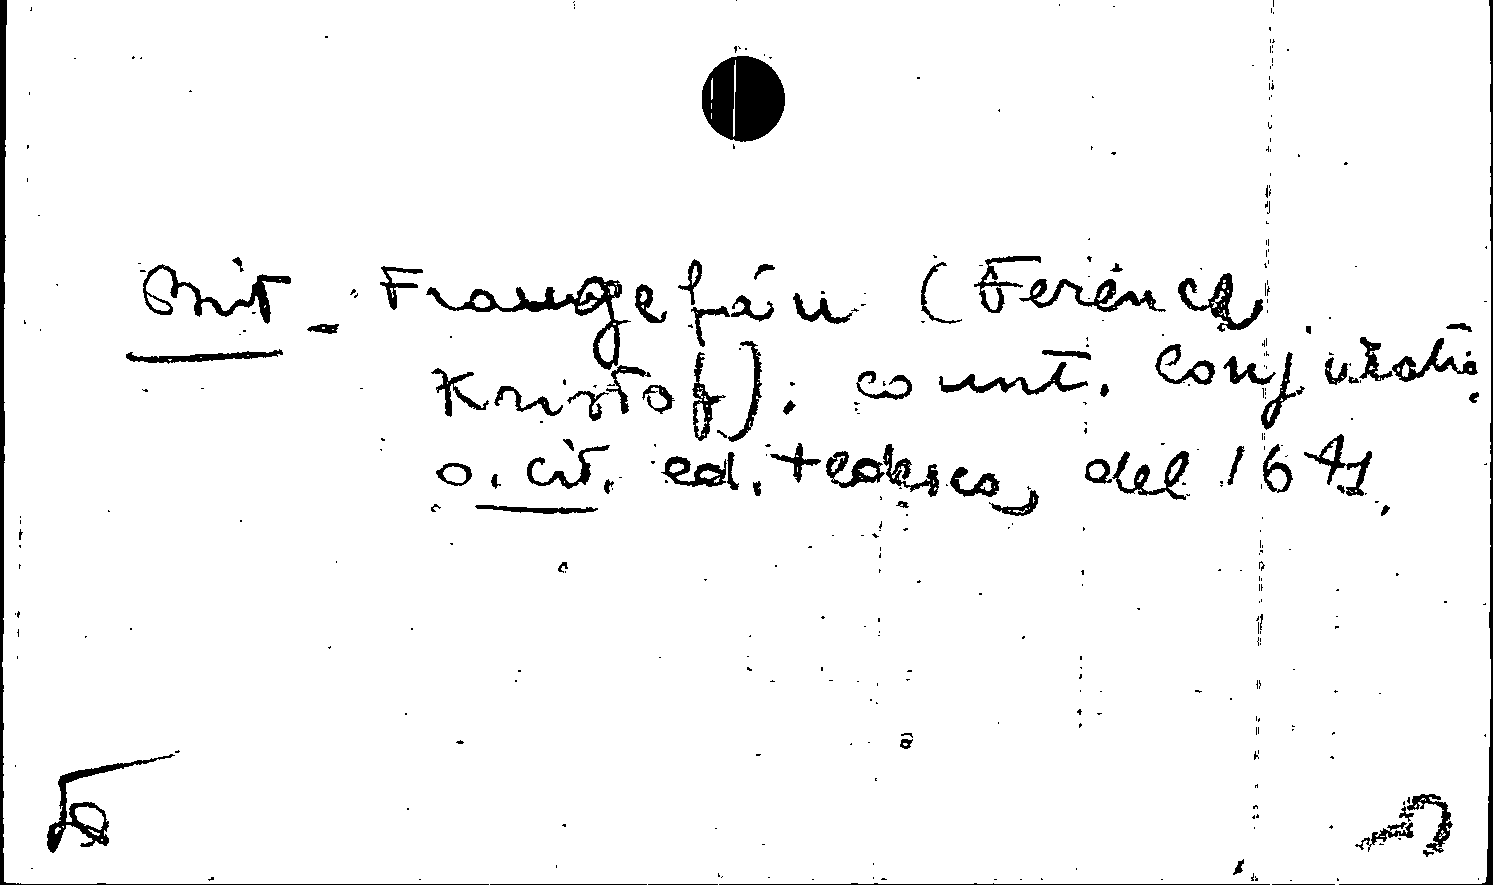 Brit - Frangefán (Ferencz
Kristof). count. conjuratio.
o. cit. ed. tedesca, del 1671.